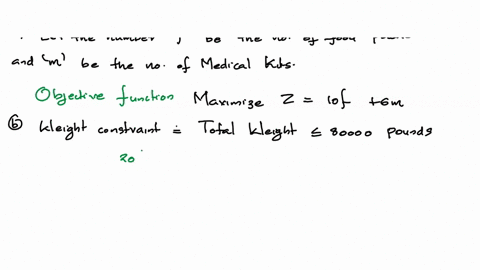 . Let the number f be the no. of food
and 'm' be the no. of Medical Kits.
Objective function Maximize Z = 10f + 6m
ⓑ Weight constraint = Total Weight ≤ 80000 pounds
20